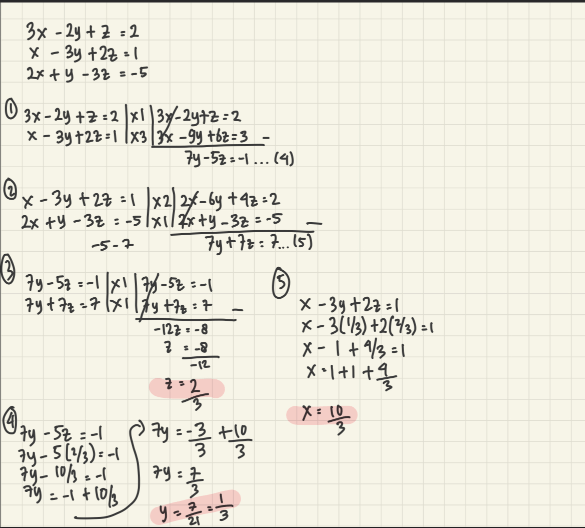 3x - 2y + z = 2
x - 3y + 2z = 1
2x + y - 3z = -5
① 3x - 2y + z = 2 | x1 | 3x - 2y + z = 2
x - 3y + 2z = 1 | x3 | 3x - 9y + 6z = 3 -
7y - 5z = -1 ... (4)
② x - 3y + 2z = 1 | x2 | 2x - 6y + 4z = 2
2x + y - 3z = -5 | x1 | 2x + y - 3z = -5 -
-5 - 7
7y + 7z = 7 ... (5)
③ 7y - 5z = -1 | x1 | 7y - 5z = -1
7y + 7z = 7 | x1 | 7y + 7z = 7 -
-12z = -8
z = -8/-12
z = 2/3
④ 7y - 5z = -1
7y - 5(2/3) = -1
7y - 10/3 = -1
7y = -1 + 10/3
7y = -3/3 + 10/3
7y = 7/3
y = 7/21 = 1/3
⑤ x - 3y + 2z = 1
x - 3(1/3) + 2(2/3) = 1
x - 1 + 4/3 = 1
x = 1 + 1 + 4/3
x = 10/3